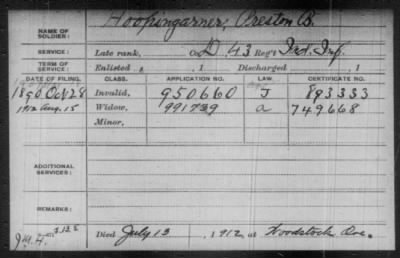 NAME OF SOLDIER: Hoopingarner, Preston B.
SERVICE: Late rank, Co. D, 43 Reg't Ind. Inf.
TERM OF SERVICE: Enlisted , 1 Discharged , 1
DATE OF FILING. CLASS. APPLICATION NO. LAW. CERTIFICATE NO.
1890 Oct 28 Invalid, 950660 J 893333
1912 Aug. 15 Widow, 991739 a 749668
Minor,
ADDITIONAL SERVICES:
REMARKS:
Died July 13, 1912 at Woodstock Ore.